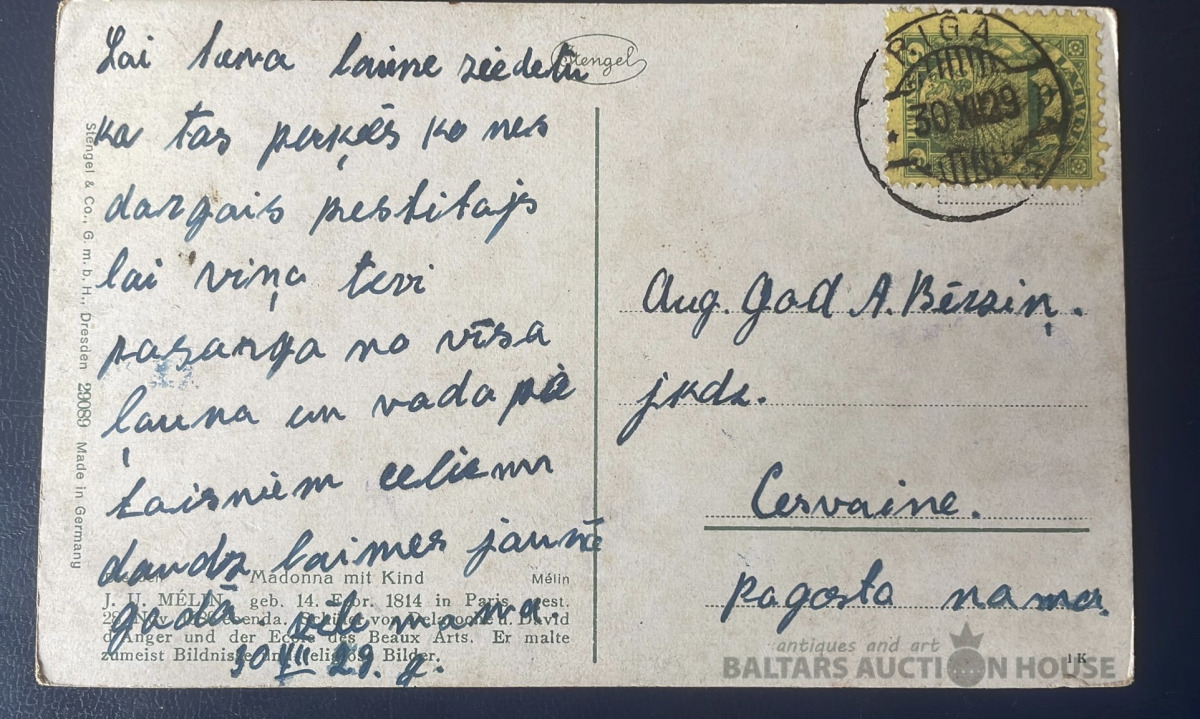 Lai tava laime ziedetu
Stengel
ka tas puķēs ko nes
dargais pestitajs
lai viņa tevi
pasarga no vīsa
ļauna un vada pa
taisniem celiem
daudz laimes jaunā
gadā. vēl mana.
30 XII 29. g.
Stengel & Co., G. m. b. H., Dresden 29089 Made in Germany
Madonna mit Kind Mélin
J. U. MÉLIN, geb. 14. Febr. 1814 in Paris, gest.
ebenda. Schüler von Delaroche u. David
d'Anger und der Ecole des Beaux Arts. Er malte
zumeist Bildnisse und religiöse Bilder.
RIGA
30 XII 29
LATVIJA
Aug. God A. Bērziņ.
jkdz.
Cesvaine.
pagasta nama.
1 K
antiques and art
BALTARS AUCTION HOUSE